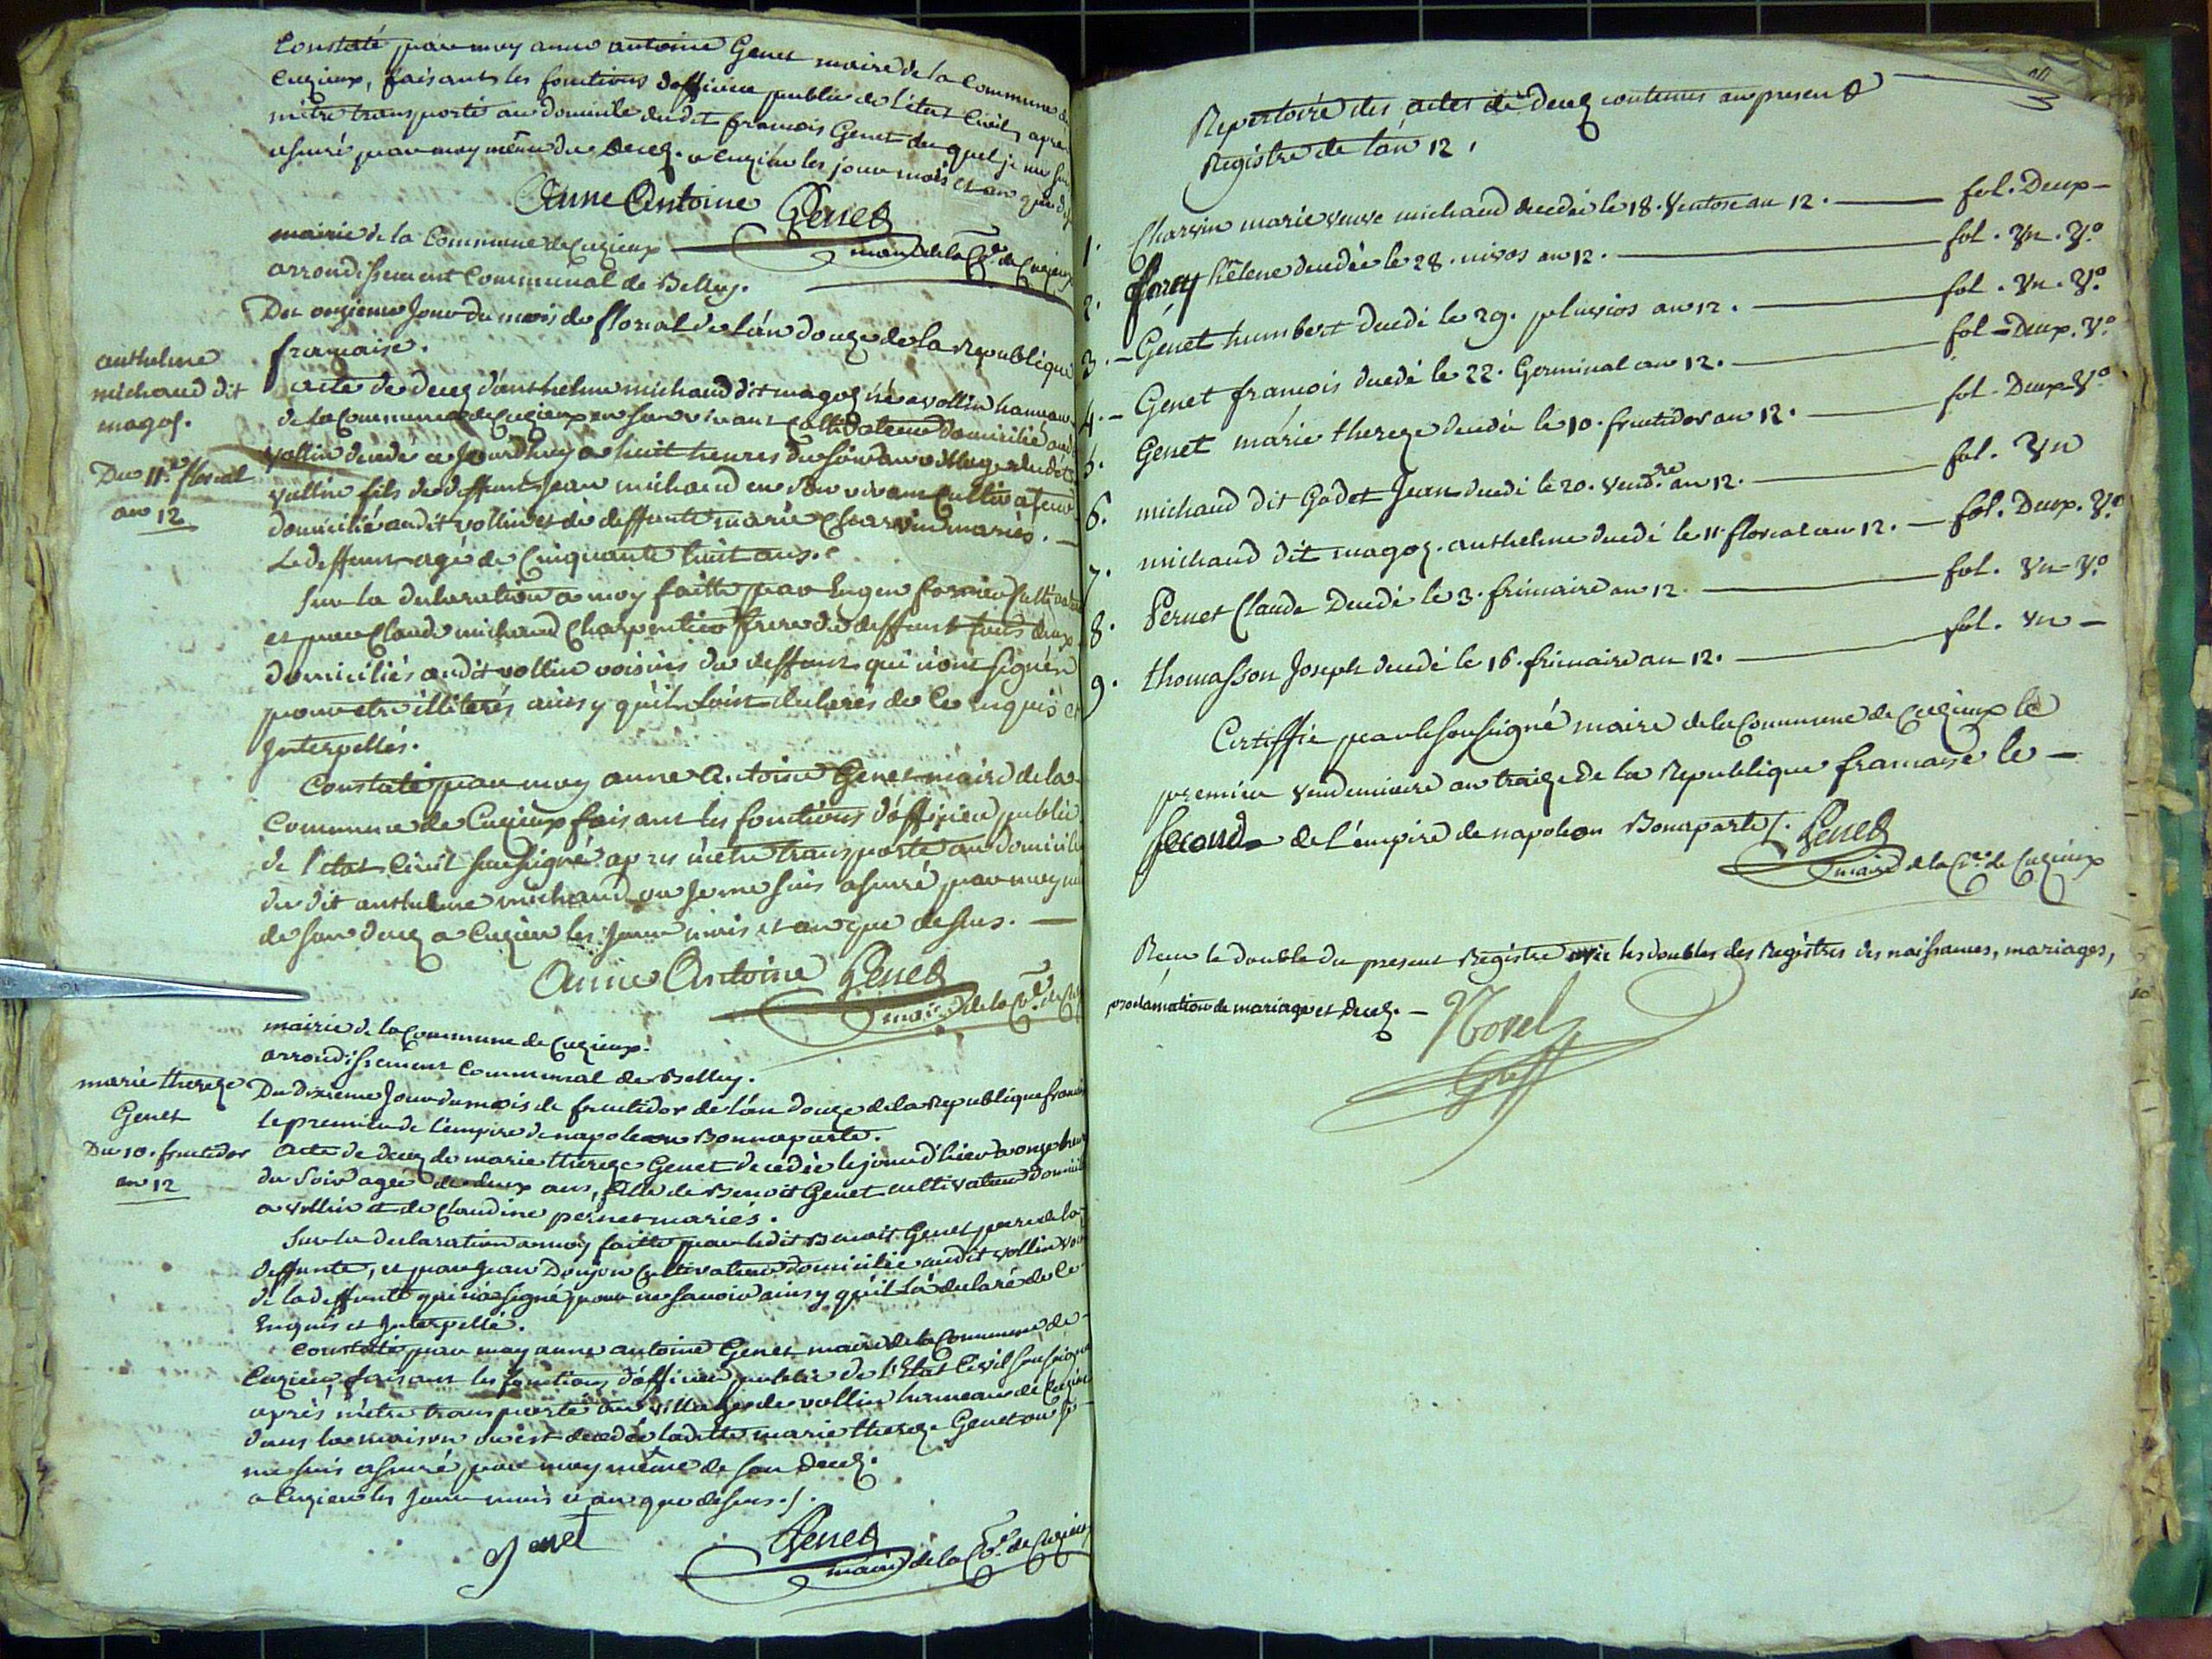 Constaté par moy anne antoine Genet maire de la Commune de
Cuzieux, faisant les fonctions dofficier public de l'etat Civil, apres
m'etre transporté au domicile dudit francois Genet du quel je me suis
assuré par moy même du decez. a Cuzieu les jour mois et an que dessus
Anne Antoine Genet
maire de la Cne de Cuzieux
mairie de la Commune de Cuzieux
arrondissement Communal de Belley.
Du onzieme Jour du mois de floreal de l'an douze de la Republique
francaise.
anthelme
michaud dit
magoz.
Du 11e floreal
an 12
acte de decez d'anthelme michaud dit magoz né a vollin hameau
de la Commune de Cuzieux en son vivant Cultivateur domicilié audit
vollin decedé ce Jourdhuy a huit heures du soir au village dudit
vollin fils de deffunt Jean michaud en son vivant Cultivateur
domicilié audit vollin et de deffunte marie Charvin mariés. —
Le deffunt agé de Cinquante huit ans.
Sur la declaration a moy faitte par Cultivateur
et par Claude michaud Charpentier frere du deffunt tous deux
domiciliés audit vollin voisins du deffunt qui n'ont signés
pour etre illiterés ainsy qu'il l'ont declarés de ce enquis et
Interpellés.
Constaté par moy anne Antoine Genet maire de la
Commune de Cuzieux faisant les fonctions d'officier public
de l'etat Civil soussigné apres m'etre transporté au domicile
du dit anthelme michaud ou Je me suis assuré par moy même
de son decez a Cuzieu les Jour mois et an que dessus. —
Anne Antoine Genet
maire de la Cne de
mairie de la Commune de Cuzieux.
arrondissement Communal de Belley.
marie thereze
Genet
Du 10. fructidor
an 12
Du dixieme Jour du mois de fructidor de l'an douze de la Republique francaise
le premier de l'empire de napoleon Bonnaparte.
Acte de decez de marie thereze Genet decedée le jour d'hier a onze heures
du soir agée de deux ans, fille de Benoit Genet cultivateur domicilié
a vollin et de Claudine pernet mariés.
Sur la declaration a moy faitte par ledit Benoit Genet pere de la
deffunte, et par Jean Donjon Cultivateur domicilié audit vollin voisin
de la deffunte qui n'a signé pour ne savoir ainsy qu'il l'a declaré de ce
Enquis et Interpellé.
Constaté par moy anne antoine Genet maire de la Commune de
Cuzieu faisant les fonctions d'officier public de l'Etat Civil soussigné
après m'etre transporté au village de vollin hameau de Cuzieu
dans la maison ou est decedée ladite marie thereze Genet ou je
me suis assuré par moy même de son decez.
a Cuzieu les Jour mois et an que dessus./.
genet Genet
maire de la Cne de Cuzieux
Repertoire des actes de decez contenus au present
Registre de l'an 12.
1. Charvin marie veuve michaud decedée le 18. Ventose an 12. — fol. Deux —
2. hélene decedée le 28. nivos an 12. — fol. Un. Vo
3. — Genet humbert decedé le 29. pluvios an 12. — fol. Un. Vo
4. — Genet francois decedé le 22. Germinal an 12. — fol — Deux. Vo
5. Genet marie thereze decedée le 10. fructidor an 12. — fol. Deux Vo
6. michaud dit Godet Jean decedé le 20. Vend.re an 12. — fol. Un
7. michaud dit magoz. anthelme decedé le 11. floreal an 12. — fol. Deux. Vo
8. Pernet Claude Decedé le 3. frimaire an 12. — fol. Un — Vo
9. thomasson Joseph decedé le 16. frimaire an 12. — fol. un —
Certiffié par le soussigné maire de la Commune de Cuzieux le
premier vendemiaire an traize de la Republique francaise le —
second de l'empire de napoleon Bonaparte /. Genet
maire de la Cne de Cuzieux
Recu le double du present Registre avec les doubles des Registres des naissances, mariages,
proclamation de mariage et Decez. —
Morel
Greff